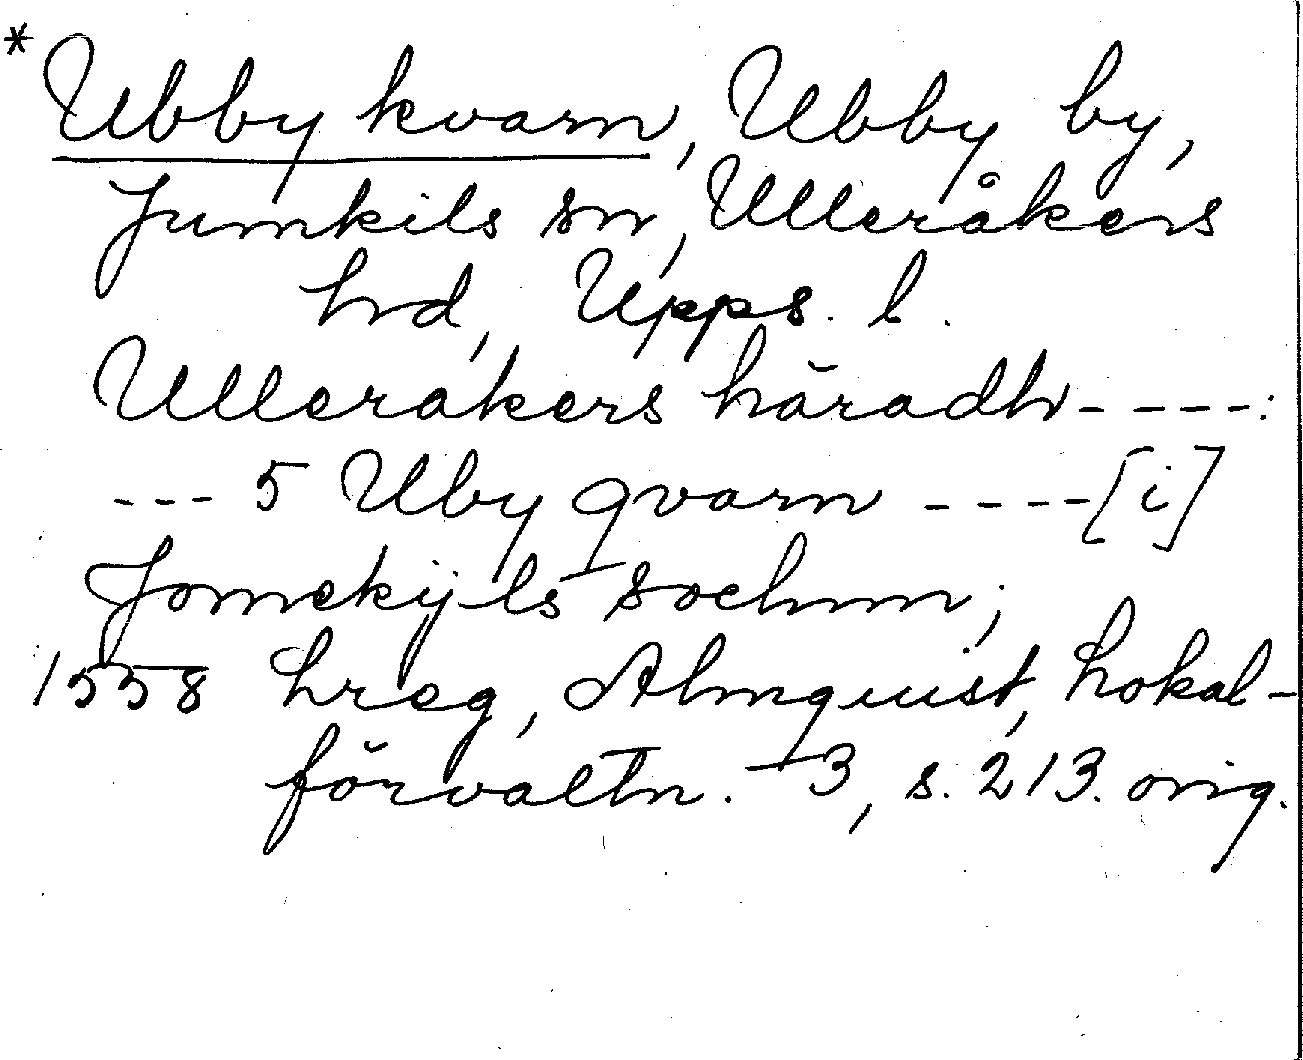 *Ubby kvarn, Ubby by,
Jumkils sn, Ulleråkers
hd, Upps. l.
Ulleråkers häradh - - - -:
- - - 5 Uby qvarn - - - - [i]
Jomekÿls sochnn;
1558 hreg, Almquist, Lokal-
förvaltn. 3, s. 213. orig.